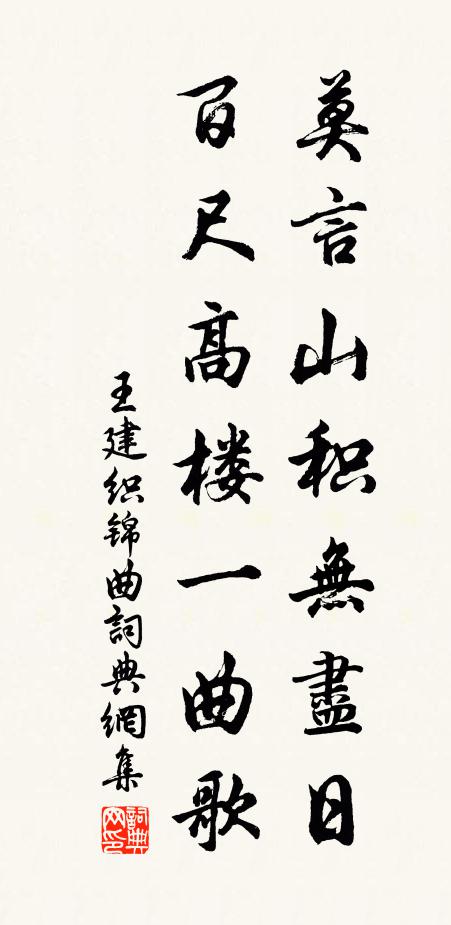 莫言山积無盡日
百尺高楼一曲歌
王建织锦曲詞典網集
詞典网印